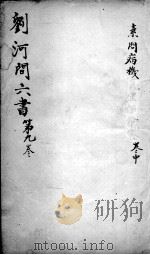 素問病機
卷中
劉河間六書第九卷